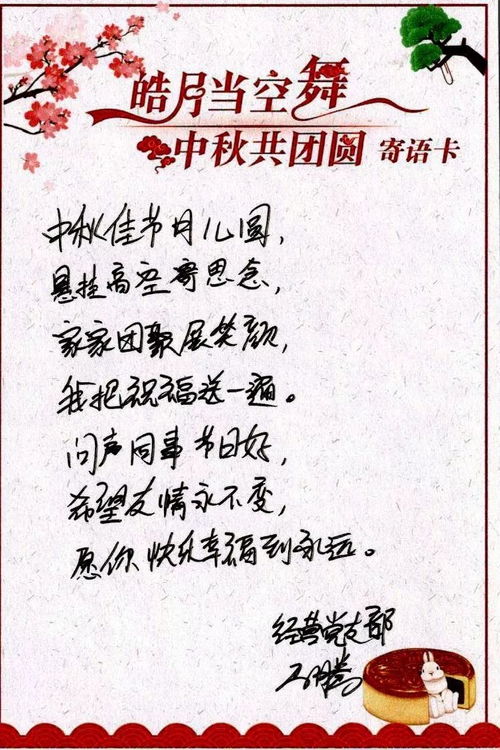 皓月当空舞
中秋共团圆 寄语卡
中秋佳节月儿圆，
悬挂高空寄思念，
家家团聚展笑颜，
我把祝福送一遍。
问声同事节日好，
希望友情永不变，
愿你快乐幸福到永远。
经营党支部